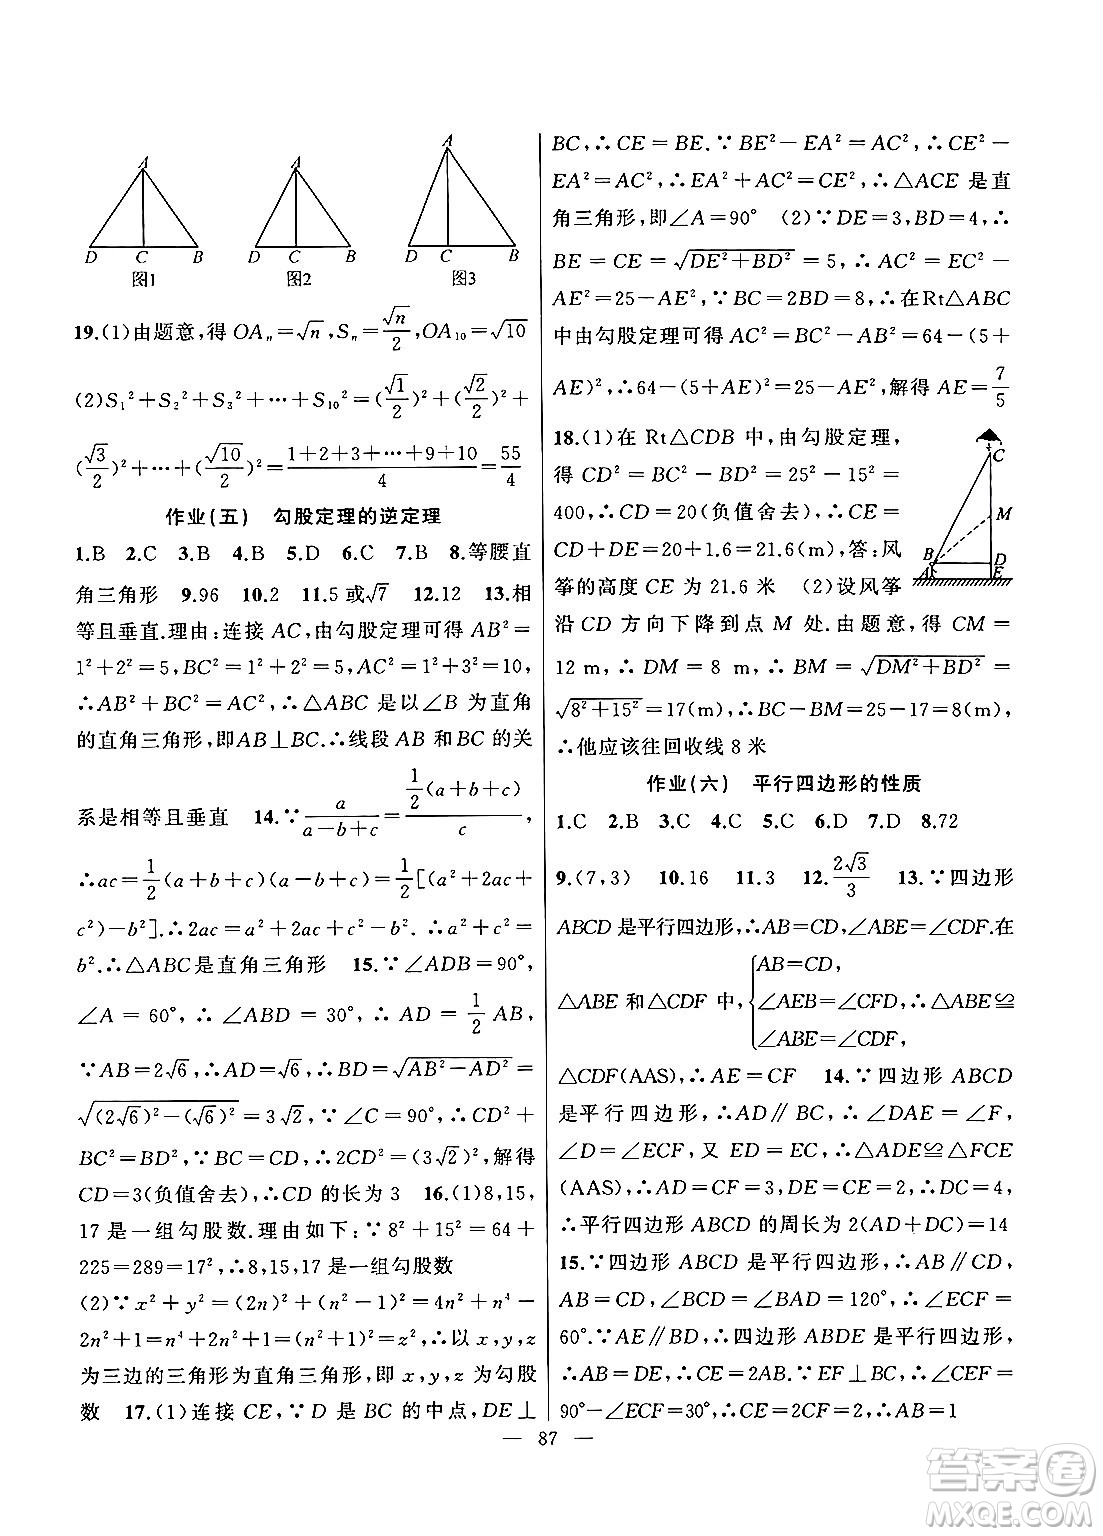 A
D C B
图1
A
D C B
图2
A
D C B
图3
19.(1)由题意,得 OAₙ=√n,Sₙ=√n/2,OA₁₀=√10
(2)S₁²+S₂²+S₃²+⋯+S₁₀²=(√1/2)²+(√2/2)²+
(√3/2)²+⋯+(√10/2)²=(1+2+3+⋯+9+10)/4=55/4
作业(五) 勾股定理的逆定理
1.B 2.C 3.B 4.B 5.D 6.C 7.B 8.等腰直
角三角形 9.96 10.2 11.5或√7 12.12 13.相
等且垂直.理由:连接 AC,由勾股定理可得 AB²=
1²+2²=5,BC²=1²+2²=5,AC²=1²+3²=10,
∴AB²+BC²=AC²,∴△ABC 是以∠B 为直角
的直角三角形,即AB⊥BC.∴线段 AB 和 BC 的关
系是相等且垂直 14.∵a/(a-b+c)=½(a+b+c)/c,
∴ac=½(a+b+c)(a-b+c)=½[(a²+2ac+
c²)-b²].∴2ac=a²+2ac+c²-b².∴a²+c²=
b².∴△ABC是直角三角形 15.∵∠ADB=90°,
∠A=60°,∴∠ABD=30°,∴AD=½AB,
∵AB=2√6,∴AD=√6,∴BD=√(AB²-AD²)=
√((2√6)²-(√6)²)=3√2,∵∠C=90°,∴CD²+
BC²=BD²,∵BC=CD,∴2CD²=(3√2)²,解得
CD=3(负值舍去),∴CD 的长为 3 16.(1)8,15,
17 是一组勾股数.理由如下:∵8²+15²=64+
225=289=17²,∴8,15,17 是一组勾股数
(2)∵x²+y²=(2n)²+(n²-1)²=4n²+n⁴-
2n²+1=n⁴+2n²+1=(n²+1)²=z²,∴以 x,y,z
为三边的三角形为直角三角形,即 x,y,z 为勾股
数 17.(1)连接 CE,∵D 是 BC 的中点,DE⊥
BC,∴CE=BE.∵BE²-EA²=AC²,∴CE²-
EA²=AC²,∴EA²+AC²=CE²,∴△ACE 是直
角三角形,即∠A=90° (2)∵DE=3,BD=4,∴
BE=CE=√(DE²+BD²)=5,∴AC²=EC²-
AE²=25-AE²,∵BC=2BD=8,∴在Rt△ABC
中由勾股定理可得 AC²=BC²-AB²=64-(5+
AE)²,∴64-(5+AE)²=25-AE²,解得 AE=7/5
18.(1)在 Rt△CDB 中,由勾股定理,
得 CD²=BC²-BD²=25²-15²=
400,∴CD=20(负值舍去),∴CE=
CD+DE=20+1.6=21.6(m),答:风
筝的高度 CE 为 21.6 米 (2)设风筝
沿 CD 方向下降到点 M 处.由题意,得 CM=
12 m,∴DM=8 m,∴BM=√(DM²+BD²)=
√(8²+15²)=17(m),∴BC-BM=25-17=8(m),
∴他应该往回收线 8 米
C
M
B D
A E
作业(六) 平行四边形的性质
1.C 2.B 3.C 4.C 5.C 6.D 7.D 8.72
9.(7,3) 10.16 11.3 12.2√3/3 13.∵四边形
ABCD 是平行四边形,∴AB=CD,∠ABE=∠CDF.在
△ABE 和△CDF 中,{AB=CD,
∠AEB=∠CFD,∴△ABE≌
∠ABE=∠CDF,
△CDF(AAS),∴AE=CF 14.∵四边形 ABCD
是平行四边形,∴AD∥BC,∴∠DAE=∠F,
∠D=∠ECF,又 ED=EC,∴△ADE≌△FCE
(AAS),∴AD=CF=3,DE=CE=2,∴DC=4,
∴平行四边形 ABCD 的周长为 2(AD+DC)=14
15.∵四边形 ABCD 是平行四边形,∴AB∥CD,
AB=CD,∠BCD=∠BAD=120°,∴∠ECF=
60°.∵AE∥BD,∴四边形 ABDE 是平行四边形,
∴AB=DE,∴CE=2AB.∵EF⊥BC,∴∠CEF=
90°-∠ECF=30°,∴CE=2CF=2,∴AB=1
— 87 —
答案圈
MXQE.COM